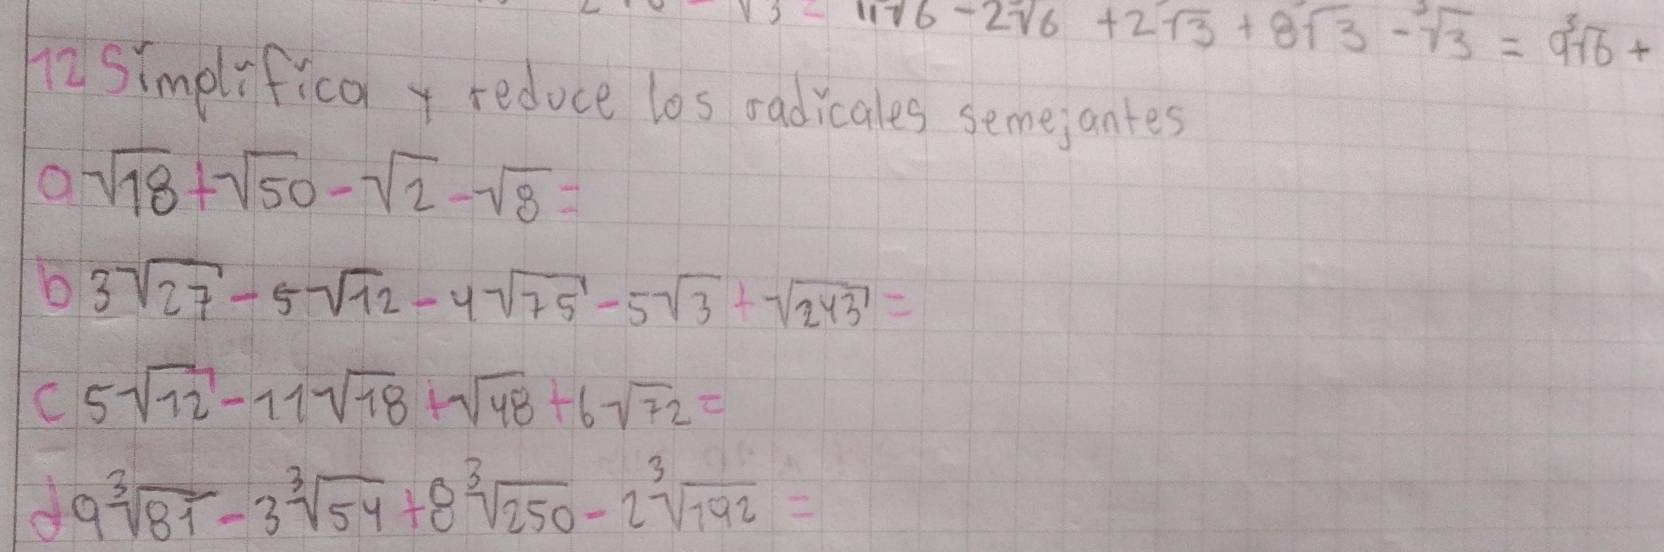 √3 = 11√6 - 2√6 + 2√3 + 8√3 - ∛3 = 9∛6 +
12 Simplifica y reduce los radicales semejantes
a √18 + √50 - √2 - √8 =
b 3√27 - 5√12 - 4√75 - 5√3 + √243 =
c 5√12 - 11√18 + √48 + 6√72 =
d 9∛81 - 3∛54 + 8∛250 - 2∛192 =